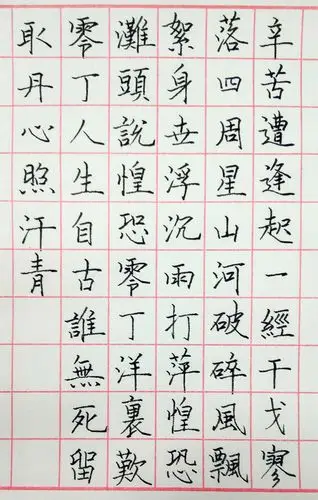 辛苦遭逢起一經干戈寥
落四周星山河破碎風飄
絮身世浮沉雨打萍惶恐
灘頭說惶恐零丁洋裏歎
零丁人生自古誰無死留
取丹心照汗青